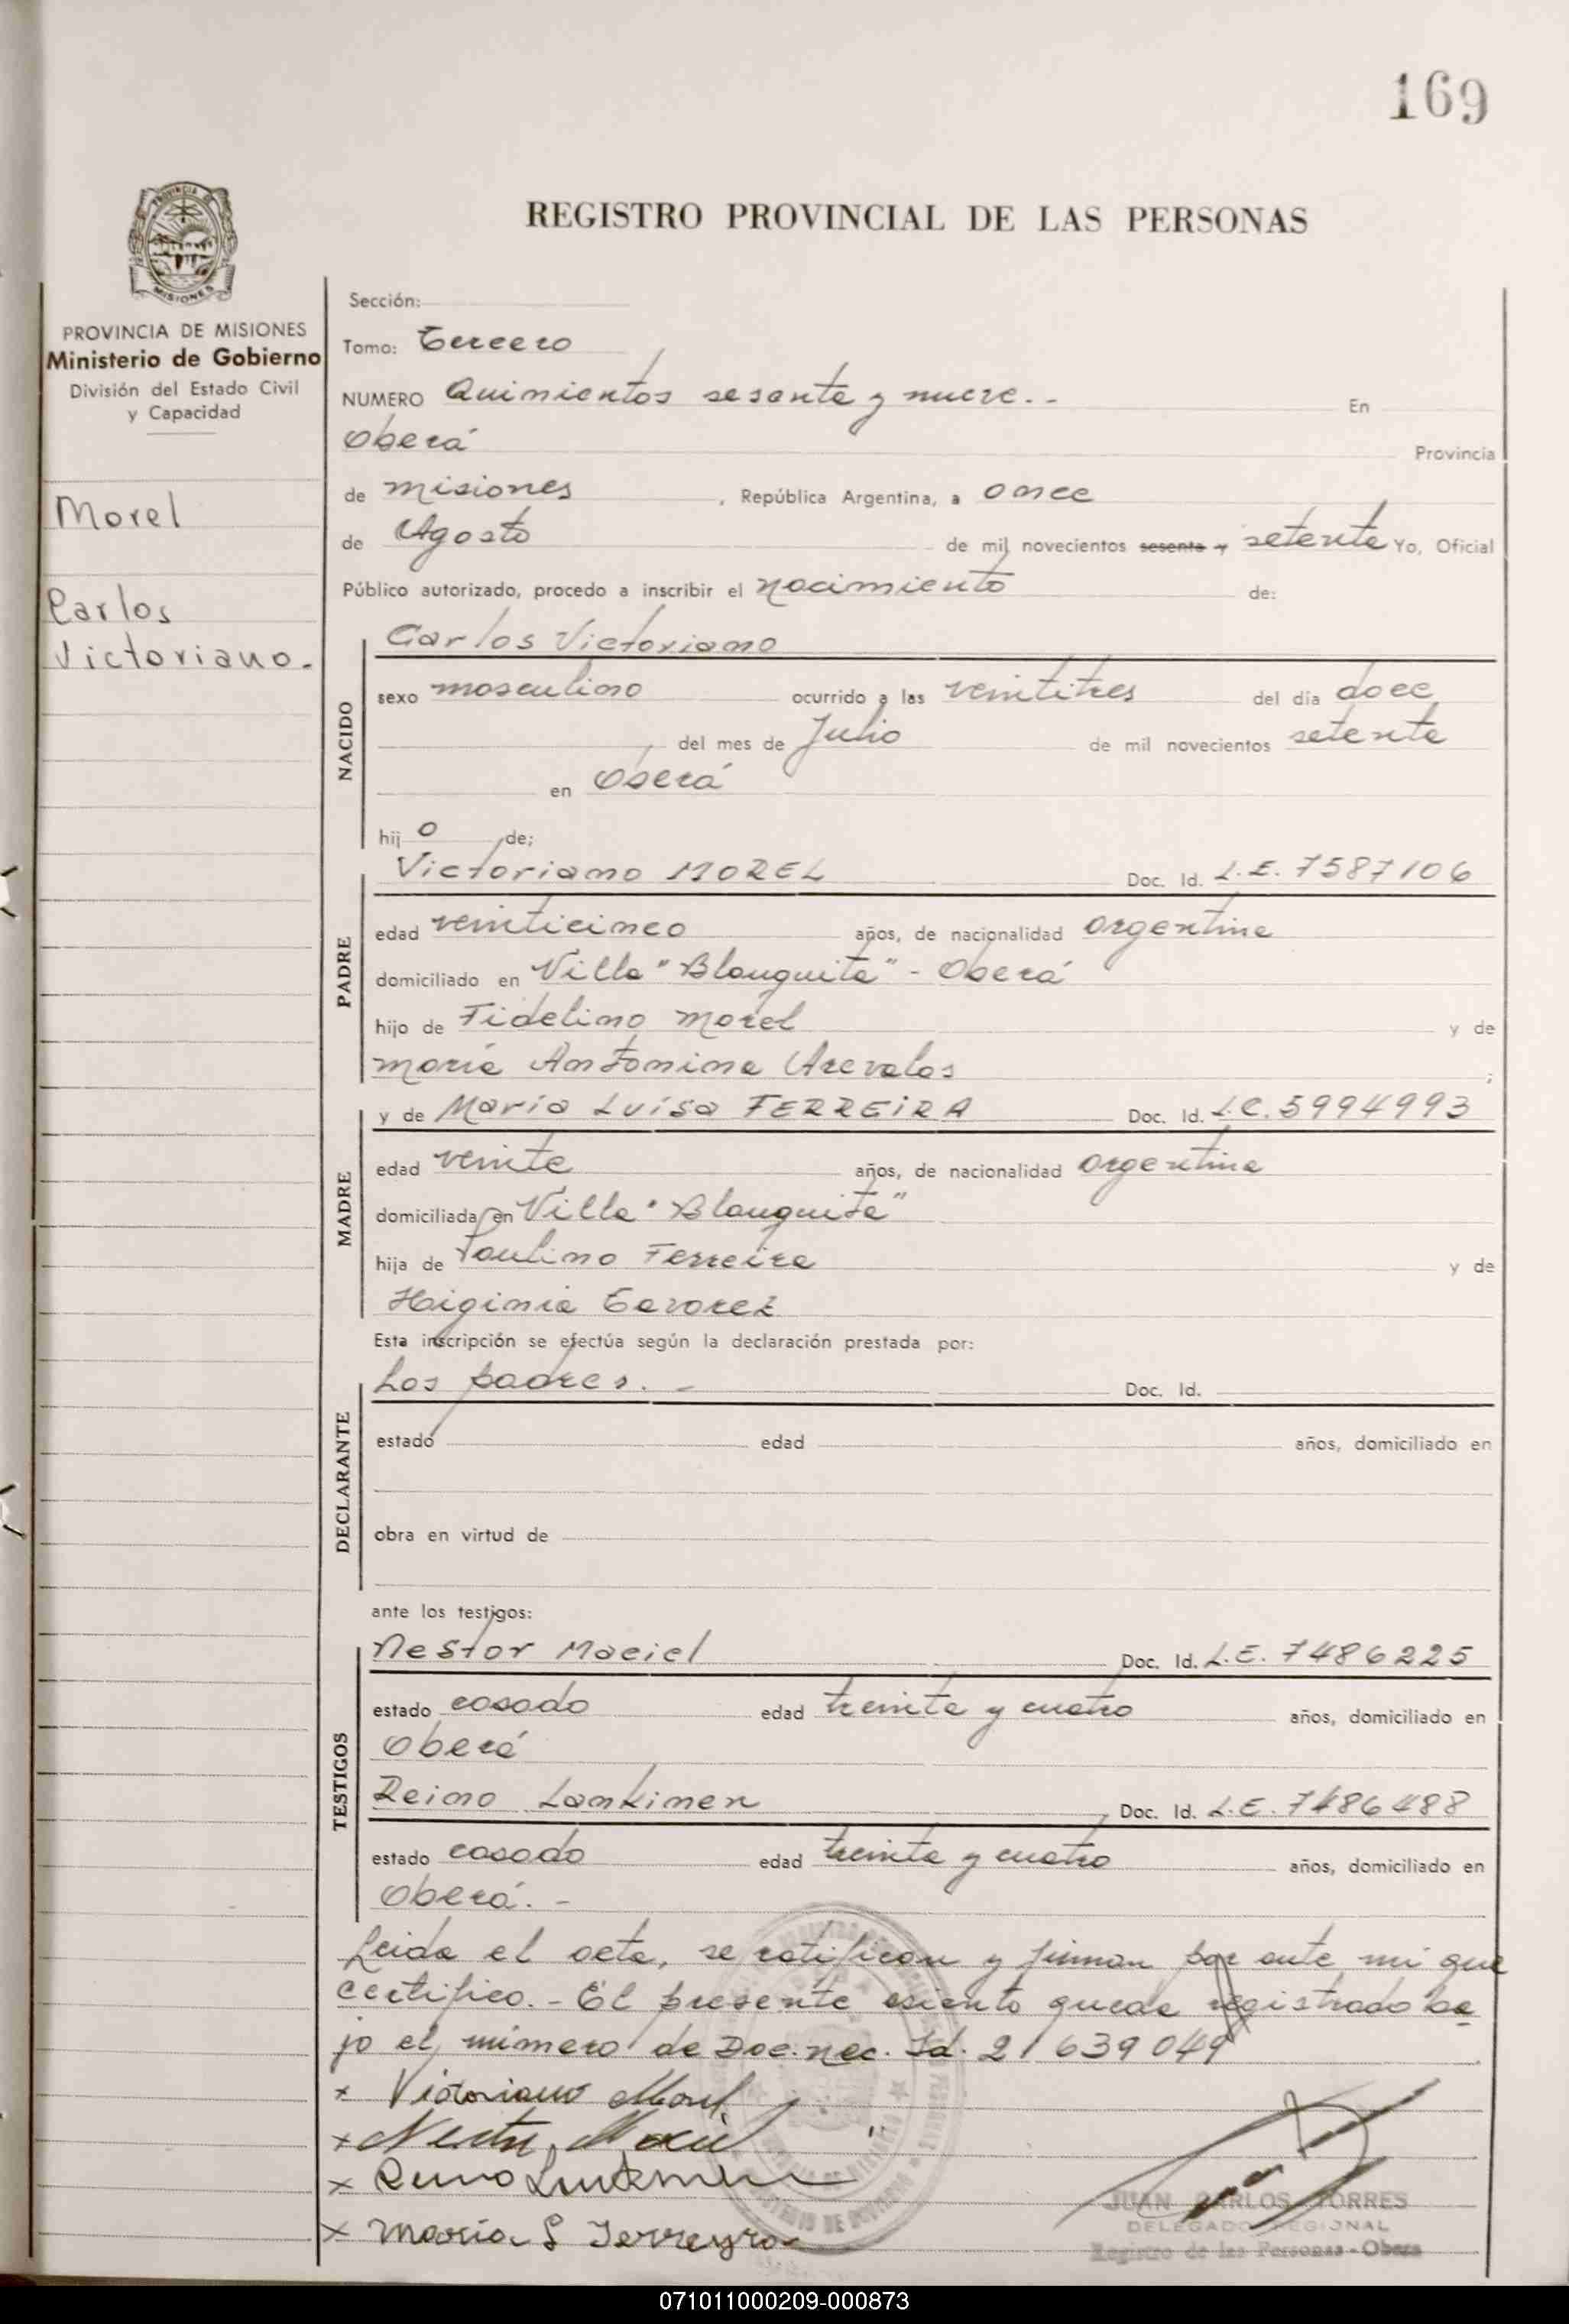 169
REGISTRO PROVINCIAL DE LAS PERSONAS
MISIONES
PROVINCIA DE MISIONES
Ministerio de Gobierno
División del Estado Civil
y Capacidad
Morel
Carlos
Victoriano.
Sección:
Tomo: Tercero
NUMERO Quinientos sesenta y nueve.- En
Oberá Provincia
de Misiones, República Argentina, a once
de Agosto de mil novecientos sesenta y setenta Yo, Oficial
Público autorizado, procedo a inscribir el nacimiento de:
NACIDO
Carlos Victoriano
sexo masculino ocurrido a las veintitres del día doce
del mes de Julio de mil novecientos setenta
en Oberá
hijo de;
PADRE
Victoriano MOREL Doc. Id. L.E. 7587106
edad veinticinco años, de nacionalidad argentina
domiciliado en Villa "Blanquita" - Oberá
hijo de Fidelino Morel y de
María Antonina Arevalos ;
MADRE
y de María Luisa FERREIRA Doc. Id. L.C. 5994993
edad veinte años, de nacionalidad argentina
domiciliada en Villa "Blanquita"
hija de Paulino Ferreira y de
Higinia Tavarez
Esta inscripción se efectúa según la declaración prestada por:
DECLARANTE
Los padres. - Doc. Id.
estado edad años, domiciliado en
obra en virtud de
ante los testigos:
TESTIGOS
Nestor Maciel Doc. Id. L.E. 7486225
estado casado edad treinta y cuatro años, domiciliado en
Oberá
Reino Lankinen Doc. Id. L.E. 7486488
estado casado edad treinta y cuatro años, domiciliado en
Oberá. -
Leida el acta, se ratifican y firman por ante mi que
certifico. - El presente asiento queda registrado ba
jo el número de Doc. nac. Id. 21639049
x Victoriano Morel
x Nestor Maciel
x Reino Lankinen
x Maria L Ferreyra
JUAN CARLOS TORRES
DELEGADO REGIONAL
Registro de las Personas - Obera
071011000209-000873